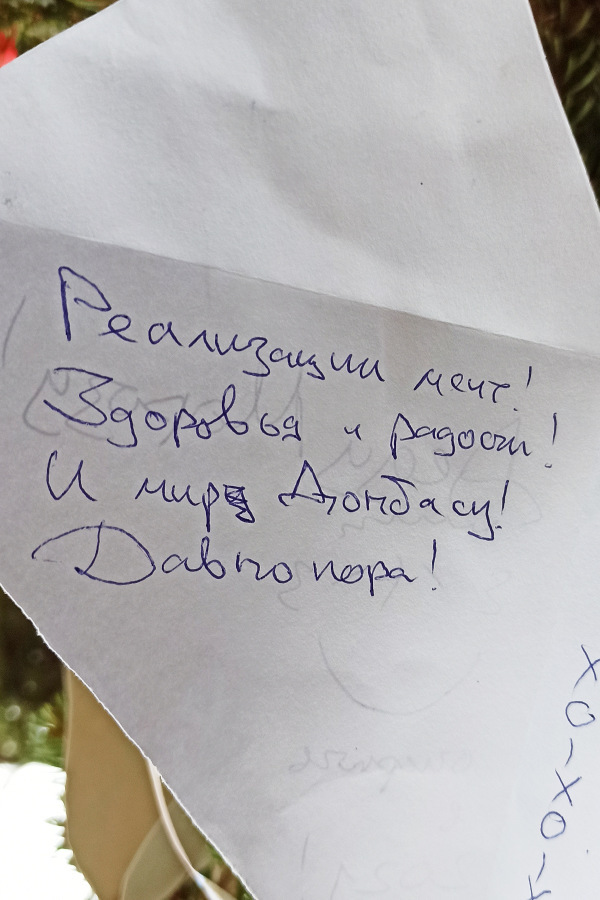 Реализации мечт!
Здоровья и радости!
И мира Донбасу!
Давно пора!
ХО-ХО-Х